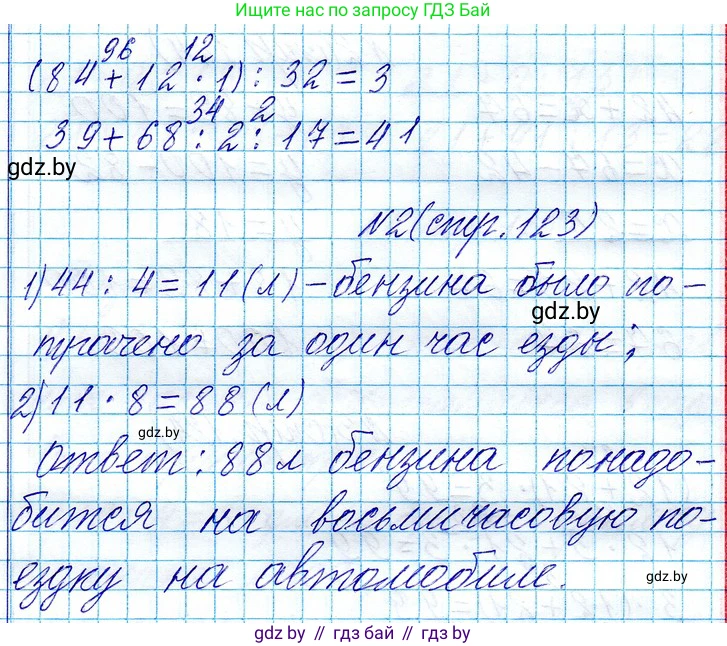 Ищите нас по запросу ГДЗ Бай
96 12
(84 + 12 · 1) : 32 = 3
34 2
39 + 68 : 2 : 17 = 41
gdz.by
№2 (стр. 123)
1) 44 : 4 = 11 (л) – бензина было по-
gdz.by
трачено за один час езды;
2) 11 · 8 = 88 (л)
gdz.by
Ответ: 88 л бензина понадо-
бится на восьмичасовую по-
ездку на автомобиле.
gdz.by
gdz by // гдз бай // гдз by